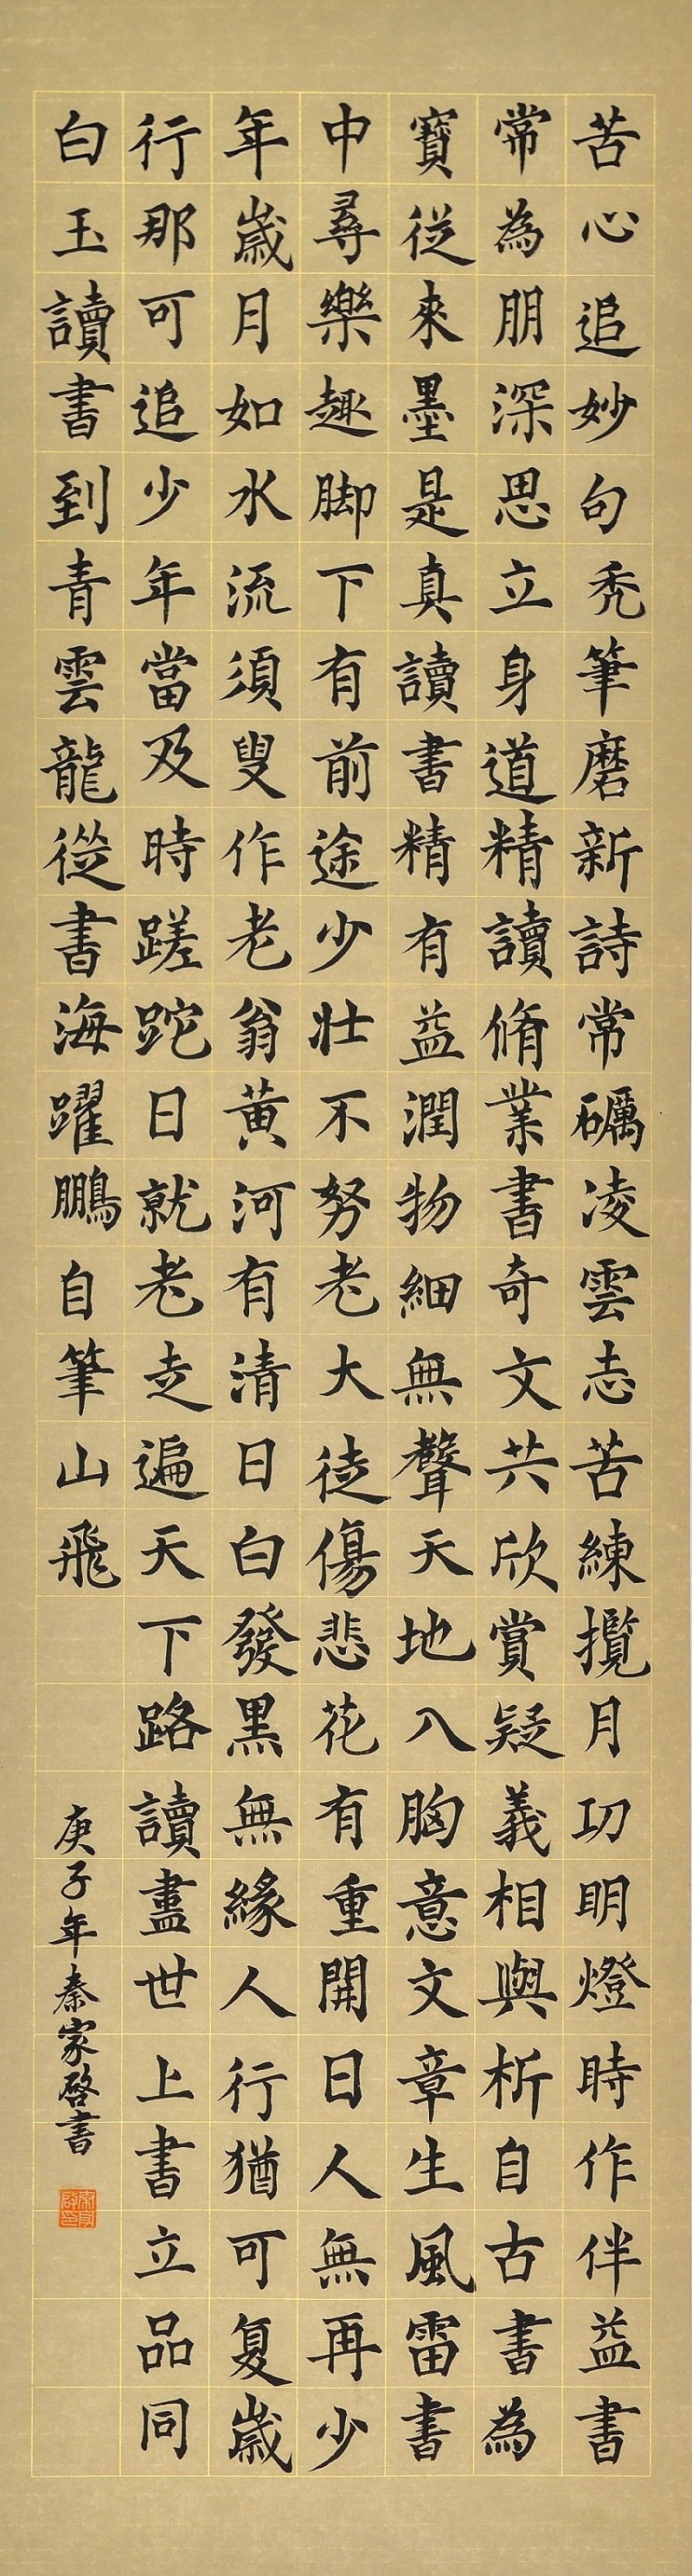 苦心追妙句秃筆磨新詩常礪凌雲志苦練攬月功明燈時作伴益書
常為朋深思立身道精讀脩業書奇文共欣賞疑義相與析自古書為
寶從來墨是真讀書精有益潤物細無聲天地入胸意文章生風雷書
中尋樂趣脚下有前途少壯不努老大徒傷悲花有重開日人無再少
年歲月如水流須叟作老翁黄河有清日白發黑無緣人行猶可复歲
行那可追少年當及時蹉跎日就老走遍天下路讀盡世上書立品同
白玉讀書到青雲龍從書海躍鵬自筆山飛
庚子年秦家啓書